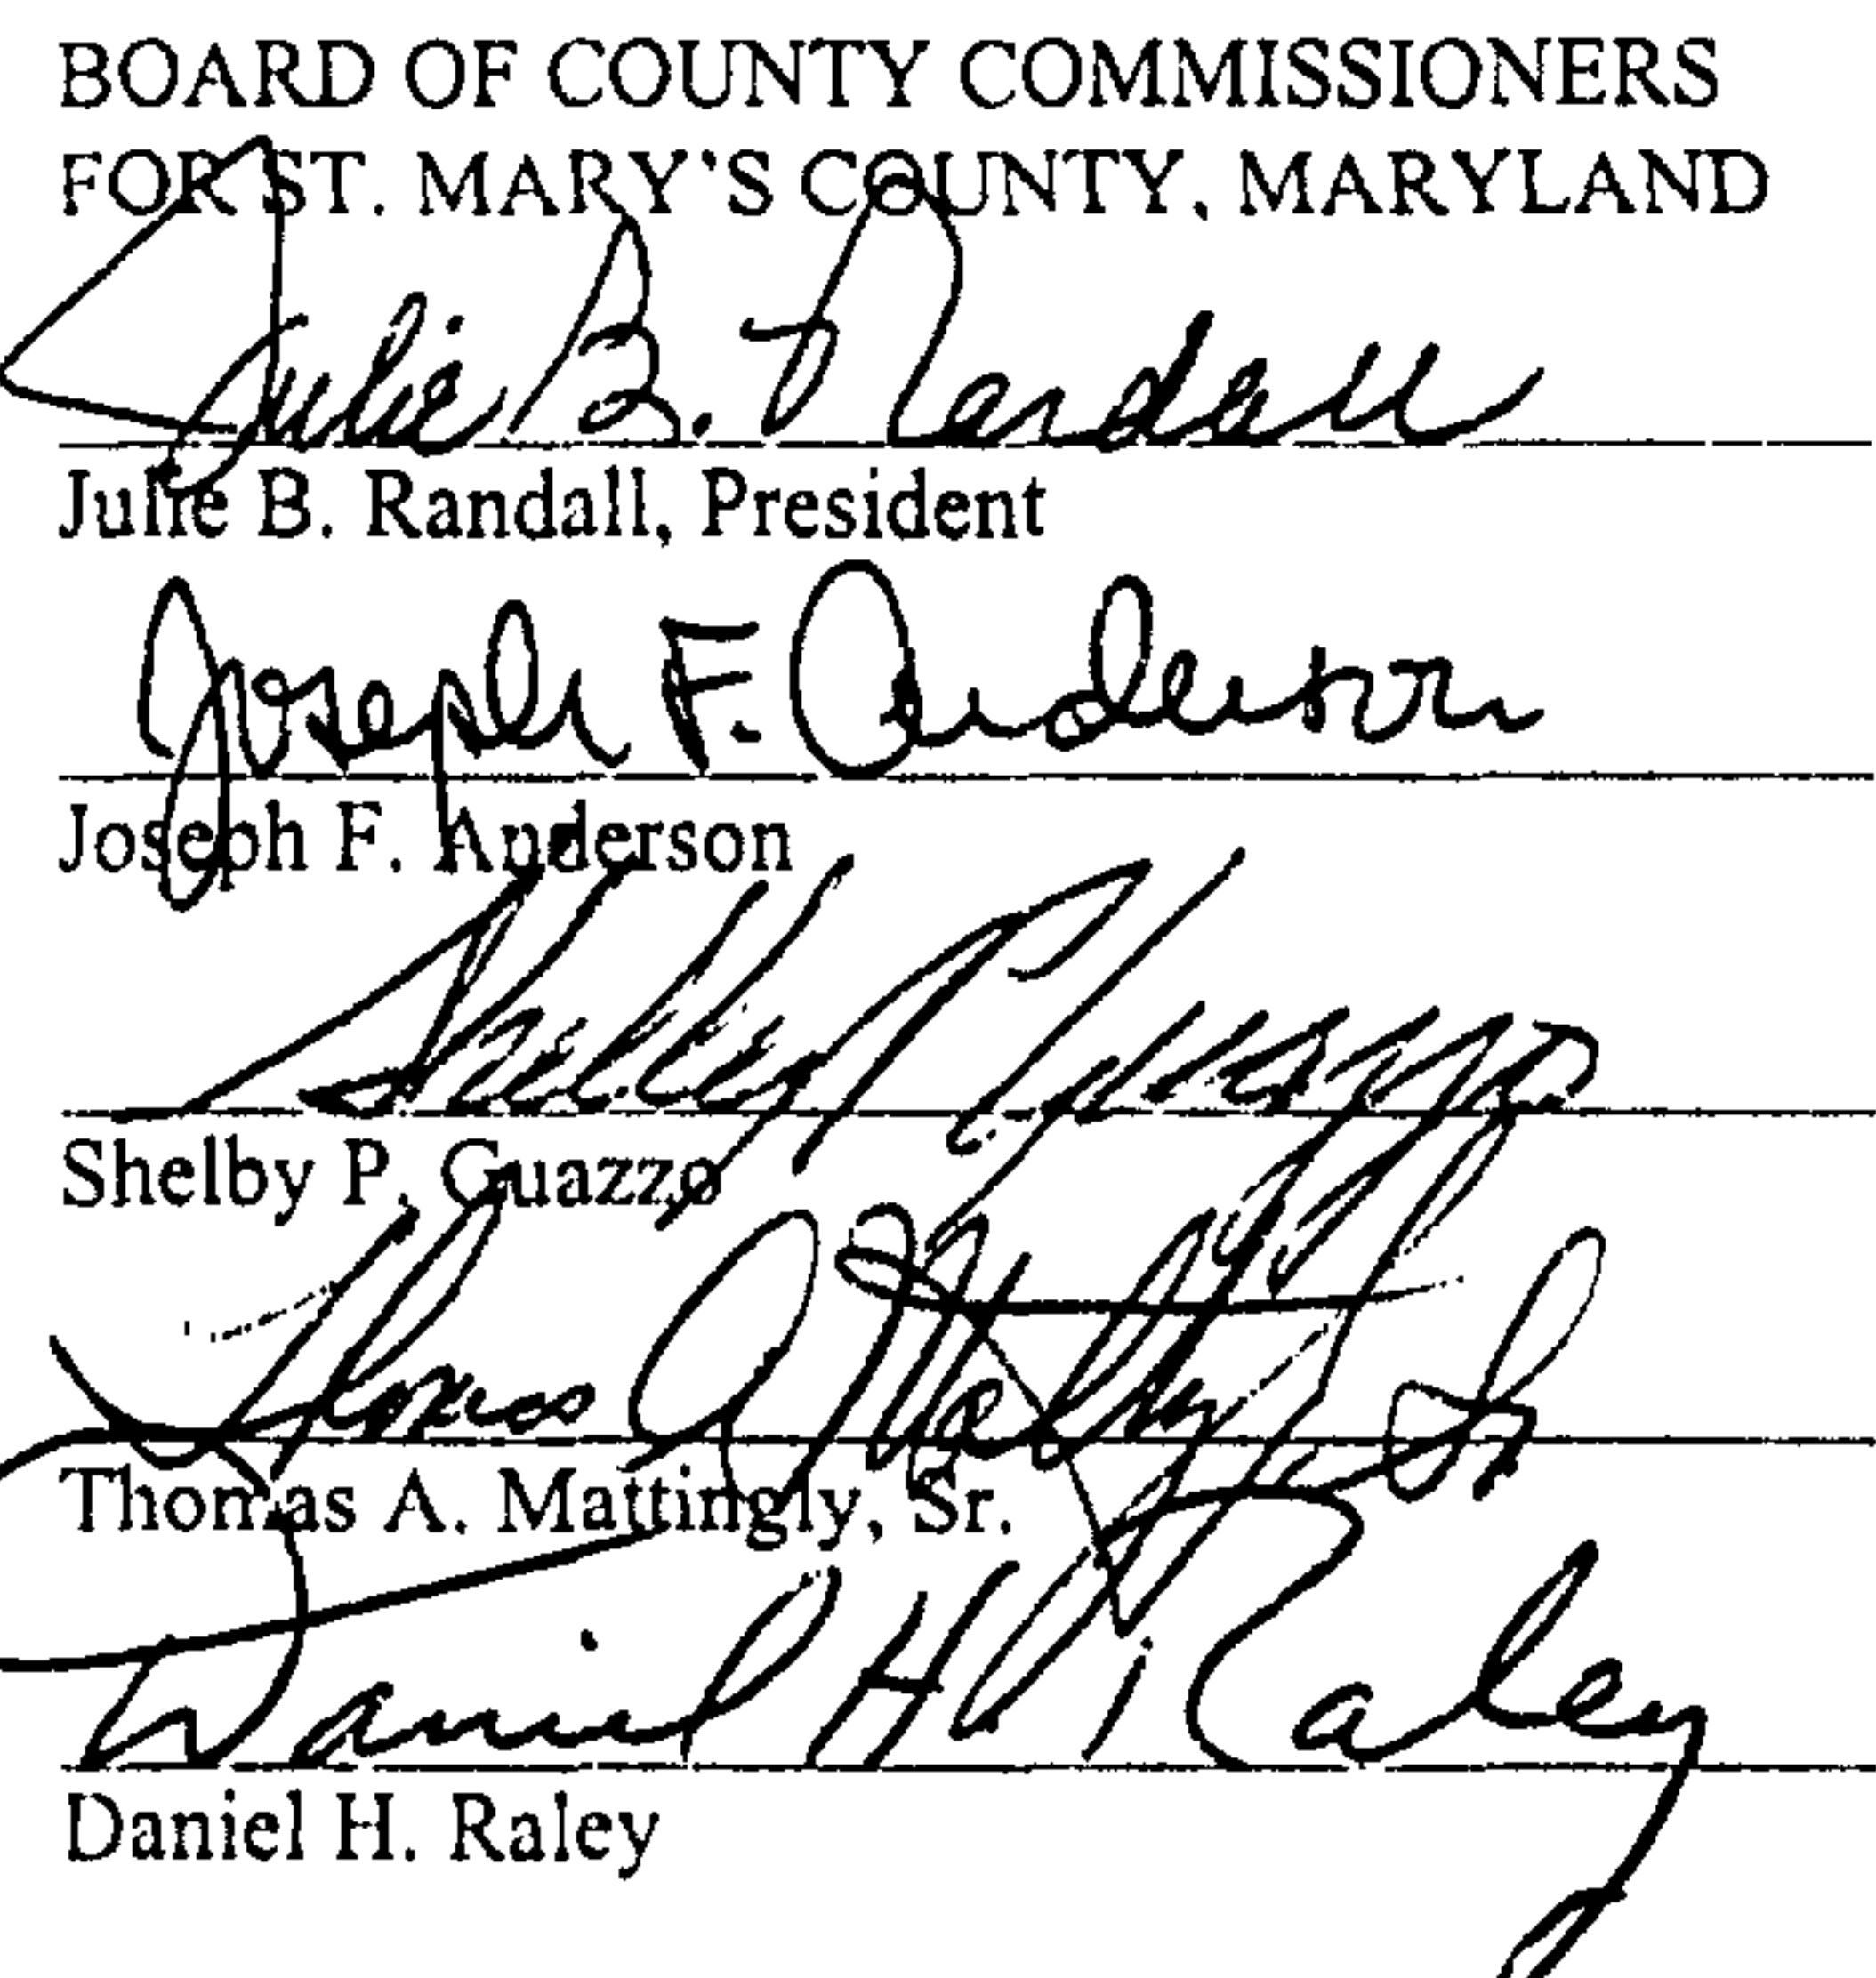 BOARD OF COUNTY COMMISSIONERS
FOR ST. MARY'S COUNTY, MARYLAND
Julie B. Randall
Julie B. Randall, President
Joseph F. Anderson
Joseph F. Anderson
Shelby P. Guazzo
Shelby P. Guazzo
Thomas A. Mattingly, Sr.
Thomas A. Mattingly, Sr.
Daniel H. Raley
Daniel H. Raley